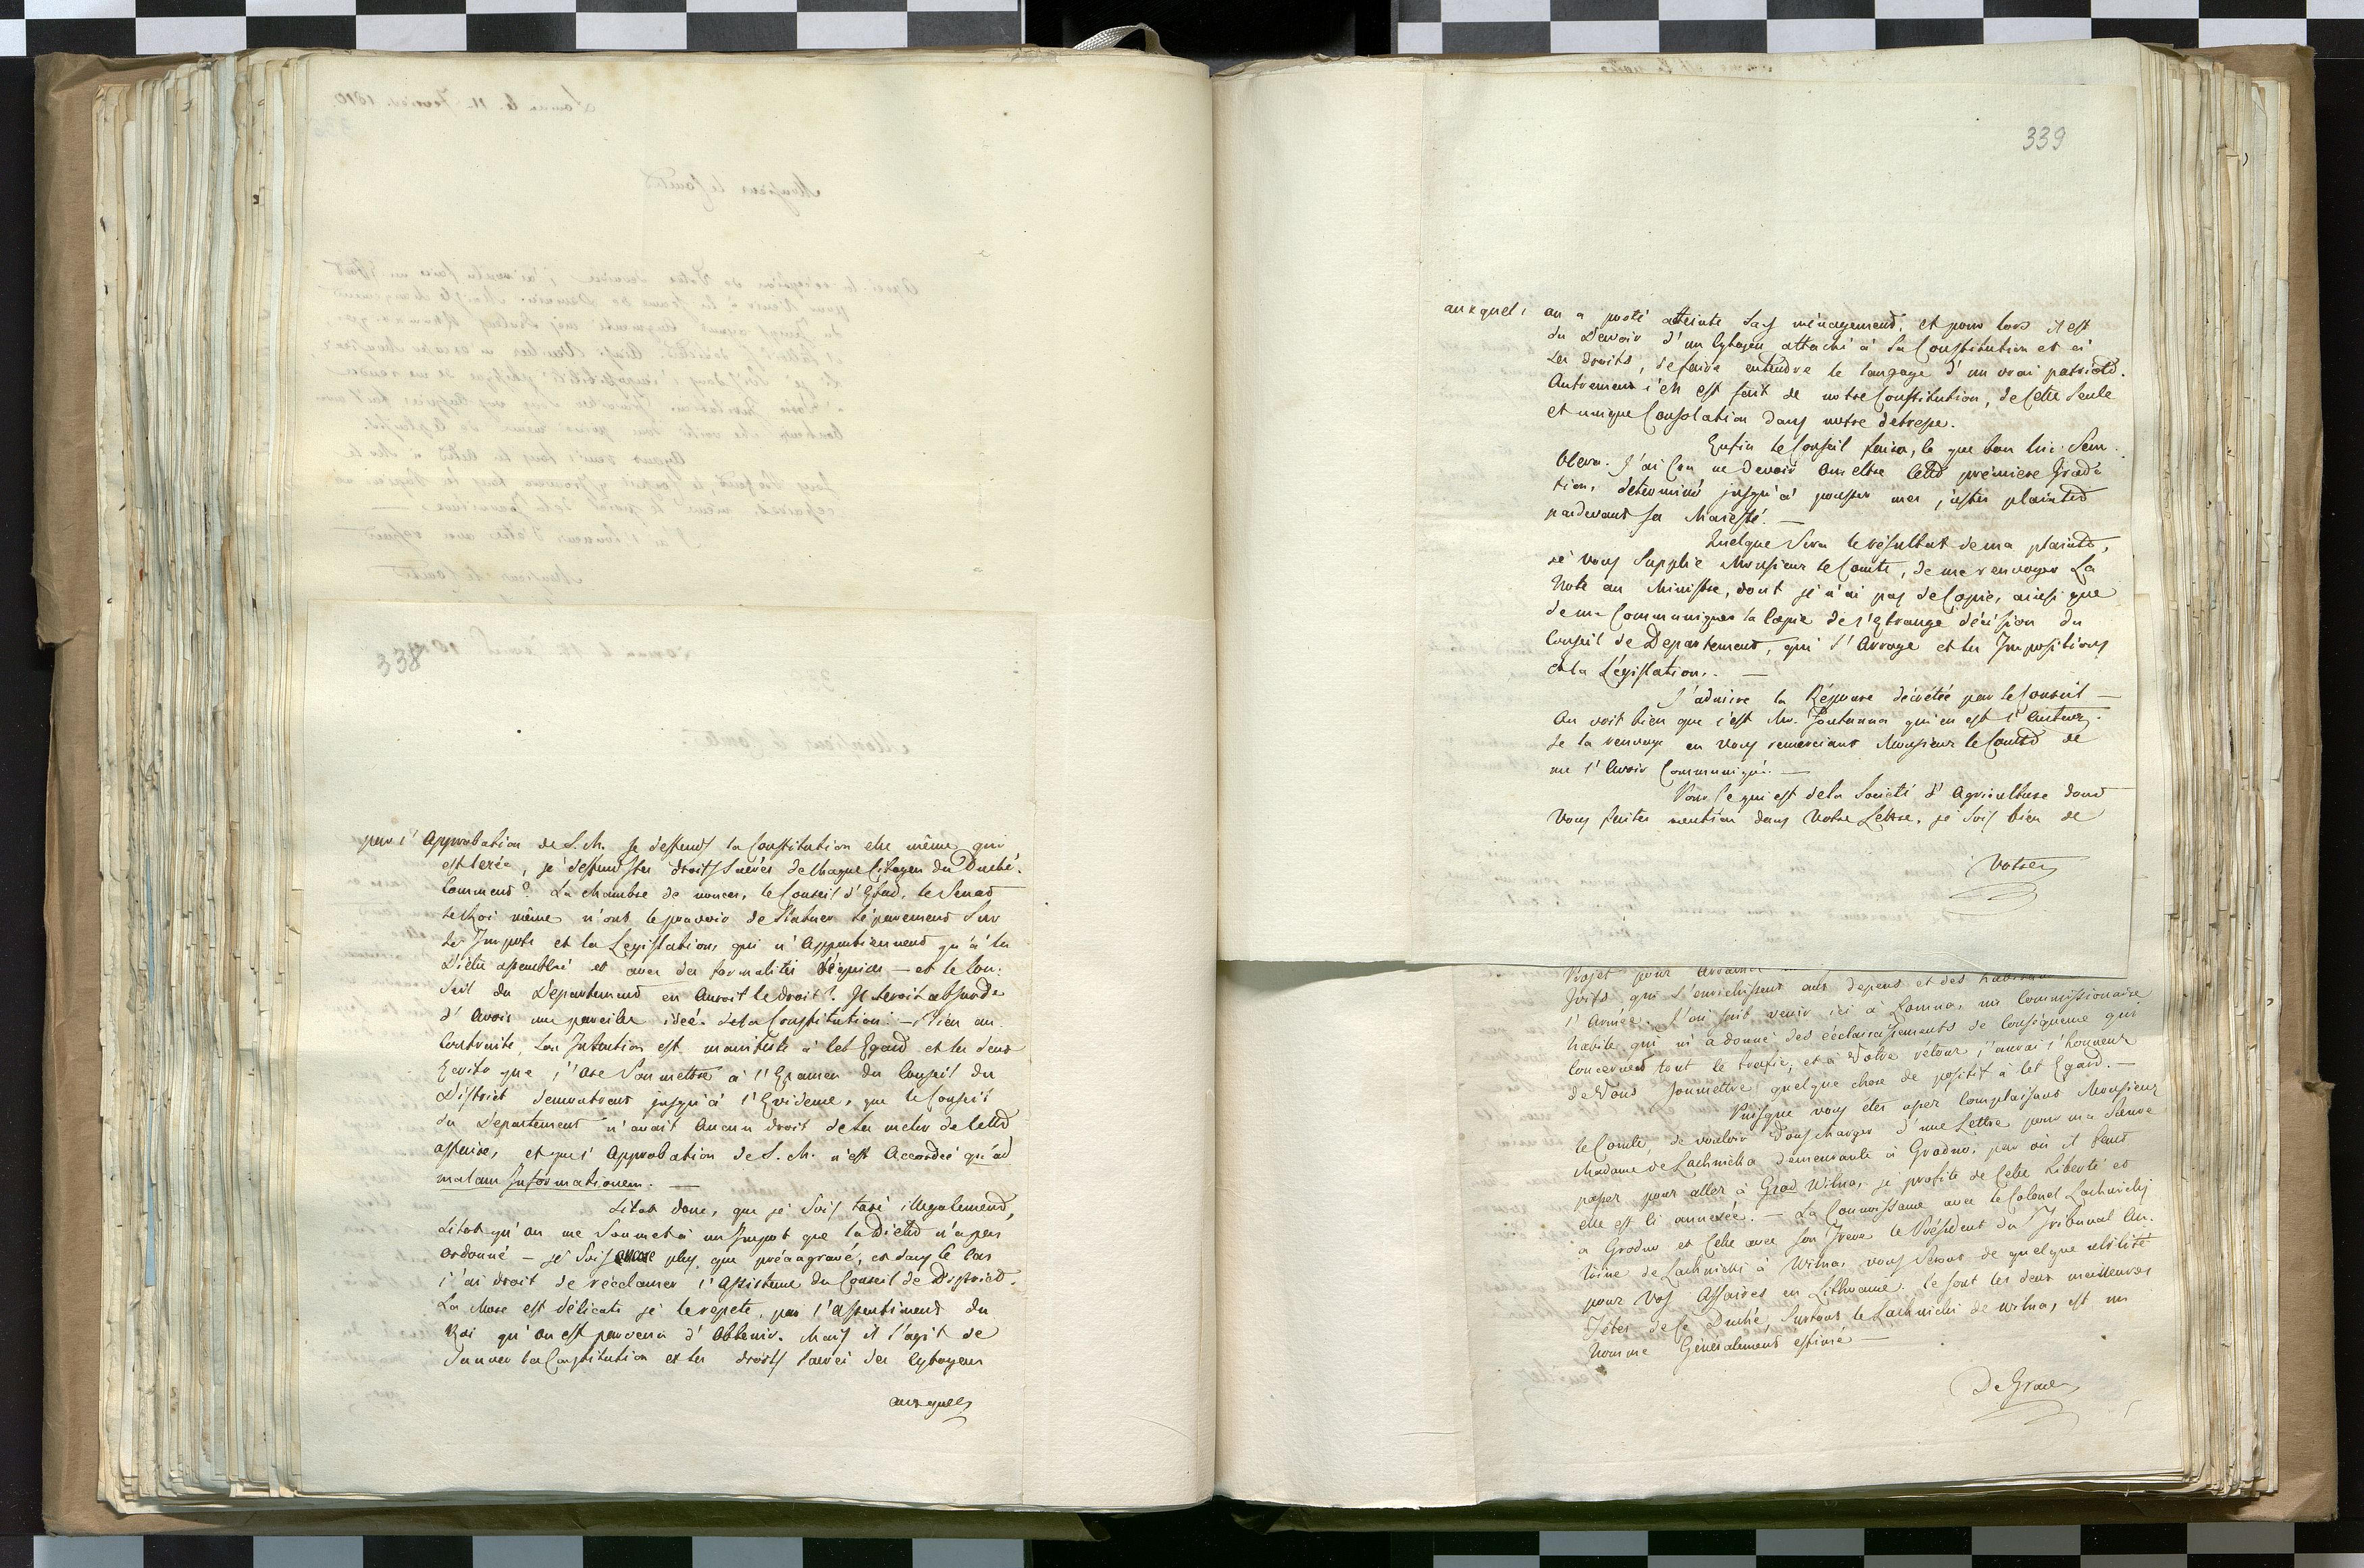 338
par l'Approbation de S. M. Je déffends la Constitution elle même qui
est lezée, je déffends les droits sacrés de chaque Citoyen du Duché.
Comment? La Chambre de nonces, le Conseil d'Etat, le Senat
le Roi même n'ont le pouvoir de Statuer séparement sur
les Impots et la Legislation, qui n'Appartiennent qu'à la
Diète assemblée et avec des formalités réquises — et le Con:
seil du Département en Auroit le droit? Il seroit absurde
d'Avoir une pareille ideé de la Constitution. — Rien au
Contraire, Son Intention est manifeste à cet Egard et les deux
Ecrits que j'Ose Soumettre à l'Examen du Conseil du
District demontrent jusqu'à l'Evidence, que le Conseil
du Département n'avait Aucun droit de se meler de cette
affaire, et que l'Approbation de S. M. n'est Accordée qu'ad
malam Informationem. —
Sitot donc, que je Suis taxé illegalement,
Sitot qu'on me Soumet à un Impot que la Diette n'a pas
ordonné — je Suis encore plus que préaagravé, et dans le cas
j'ai droit de récclamer l'Assistence du Conseil de District.
La chose est délicate je le repete, par l'Assentiment du
Roi qu'on est parvenu d'Obtenir. Mais il s'agit de
Sauver la Constitution et les droits sacrés des Cytoyens
auxquels
339
auxquels on a porté atteinte sans ménagement, et pour lors il est
du Devoir d'un Cytoyen attaché à la Constitution et à
ses droits, de faire entendre le langage d'un vrai patriote.
Autrement c'en est fait de notre Constitution, de Cette Seule
et unique Consolation dans notre détresse.
Enfin le Conseil faira, ce que bon lui Sem:
blera. J'ai Cru ne Devoir Omettre cette prémiere Grada
tion, déterminé jusqu'à pousser mes justes plaintes
pardevant Sa Majesté. —
Quelque Sera le résultat de ma plainte,
je vous Supplie Monsieur le Comte, de me renvoyer La
Note au Ministre, dont je n'ai pas de Copie, ainsi que
de me Communiquer la Copie de l'Etrange décision du
Conseil de Departement, qui s'Arroge et les Impositions
et la Législation. —
J'admire la Réponse décrétée par le Conseil —
On voit bien que c'est Mr. Fontanna qui en est l'Auteur.
Je la renvoye en vous remerciant Monsieur le Comte de
me l'Avoir Communiqué. —
Pour Ce qui est de la Societé d'Agriculture dont
Vous faites mention dans Votre Lettre, je Suis bien de
Votre
Projet pour
Juifs qui s'enrichissent aux depens et des
l'Armée. J'ai fait venir ici à Lomna, un Commissionaire
habile qui m'a donné des éclaircissements de Conséquence qui
concernent tout le trafic, et à Votre rétour j'aurai l'honneur
de Vous Soumettre quelque chose de positif à cet Egard. —
Puisque vous étes assez Complaisant Monsieur
le Comte, de vouloir Vous charger d'une Lettre pour ma Soeur
Madame de Lachnicka demeurante à Grodno, par où il faut
passer pour aller à Wilna, je profite de Cette Liberté et
elle est ci annexée. — La Connoissance avec le Colonel Lachnicki
à Grodno et Celle avec Son Frere le Président du Tribunal An:
toine de Lachnicki à Wilna, vous Seront de quelque utilité
pour Vos Affaires en Lithuanie. Ce Sont les deux meilleures
Têtes de Ce Duché, Surtout le Lachnicki de Wilna, est un
homme Géneralement éstimé —